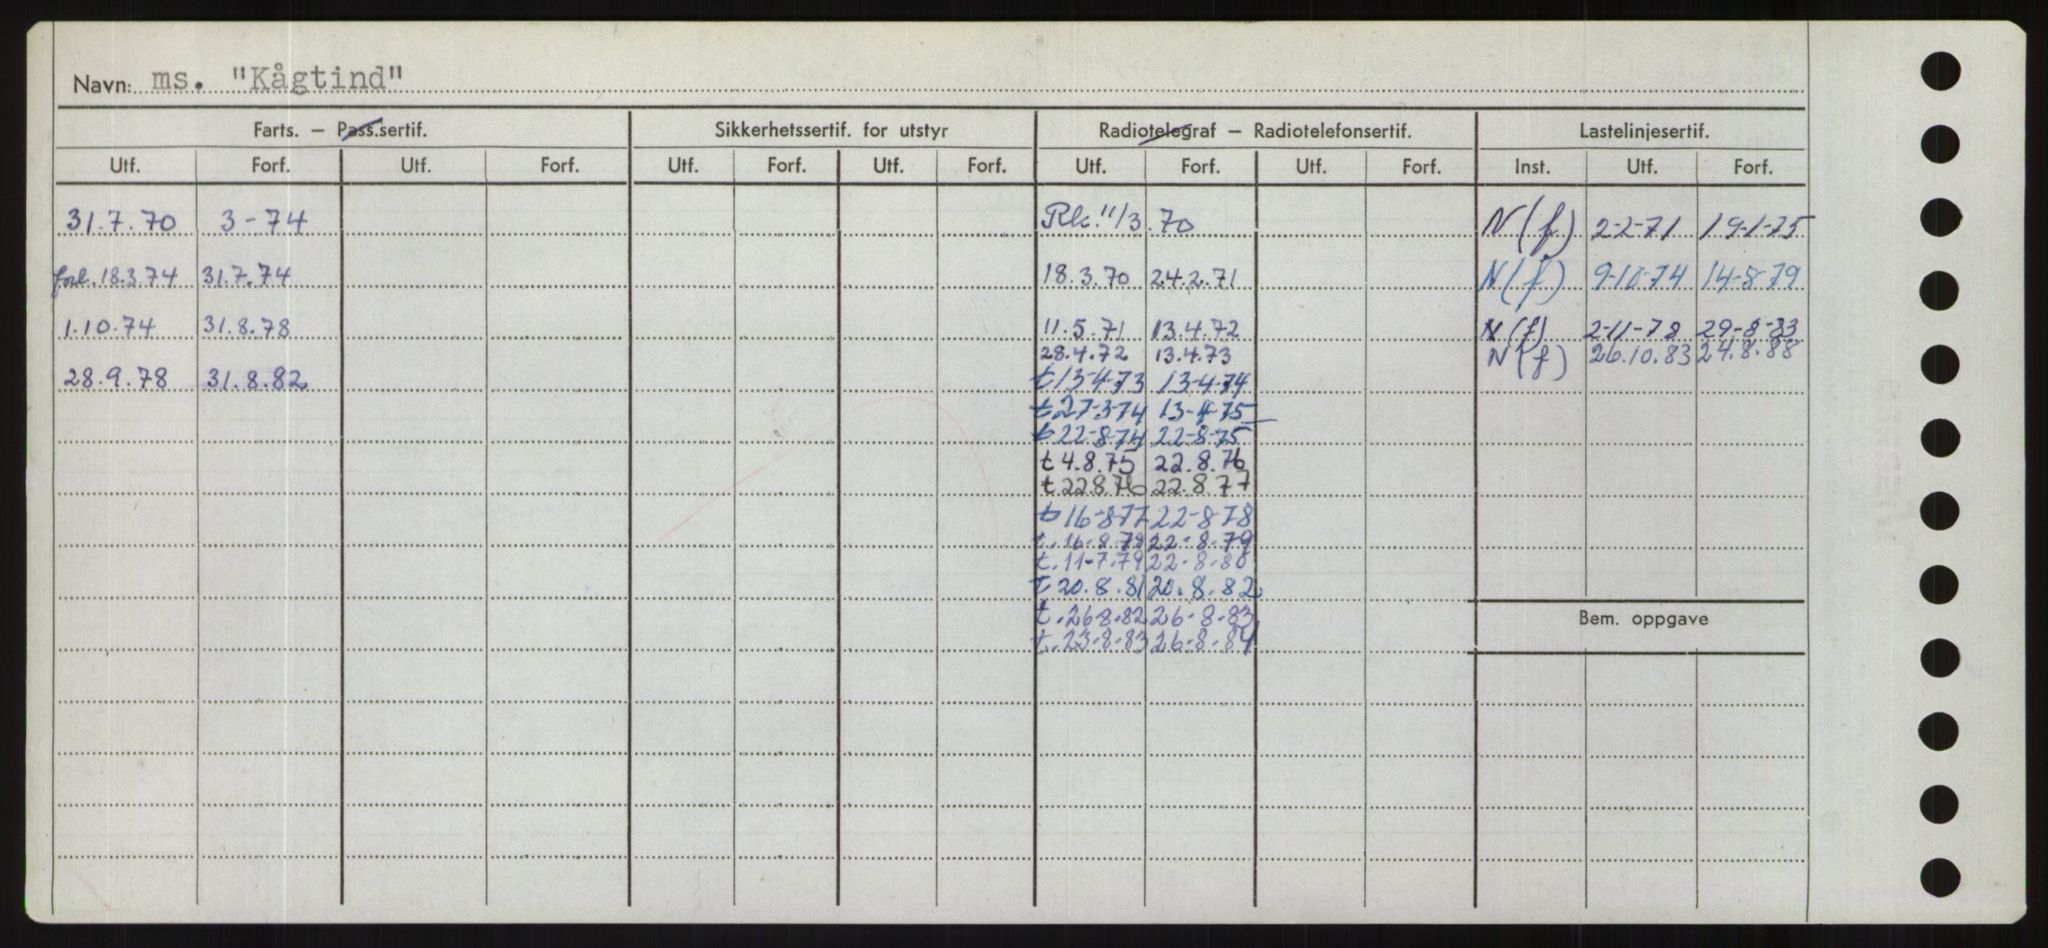 Navn: ms. "Kågtind"
Farts. – Pass.sertif. Sikkerhetssertif. for utstyr Radiotelegraf – Radiotelefonsertif. Lastelinjesertif.
Utf. Forf. Utf. Forf. Utf. Forf. Utf. Forf. Utf. Forf. Utf. Forf. Inst. Utf. Forf.
31.7.70 3-74 Rk. 11/3.70 N(f) 2-2-71 19-1-75
forl. 18.3.74 31.7.74 18.3.70 24.2.71 N(f) 9-10-74 14-8-79
1.10.74 31.8.78 11.5.71 13.4.72 N(f) 2-11-78 29-8-83
28.4.72 13.4.73 N(f) 26.10.83 24.8.88
28.9.78 31.8.82 t 13-4-73 13-4-74
t 27-3-74 13-4-75
t 22-8-74 22-8-75
t 4.8.75 22.8.76
t 22.8.76 22.8.77
t 16-8-77 22-8-78
t. 16.8.78 22-8.79
t. 11-7.79 22-8.80
t 20.8.81 20.8.82
t. 26-8.82 26-8-83
Bem. oppgave
t. 23-8-83 26-8-84